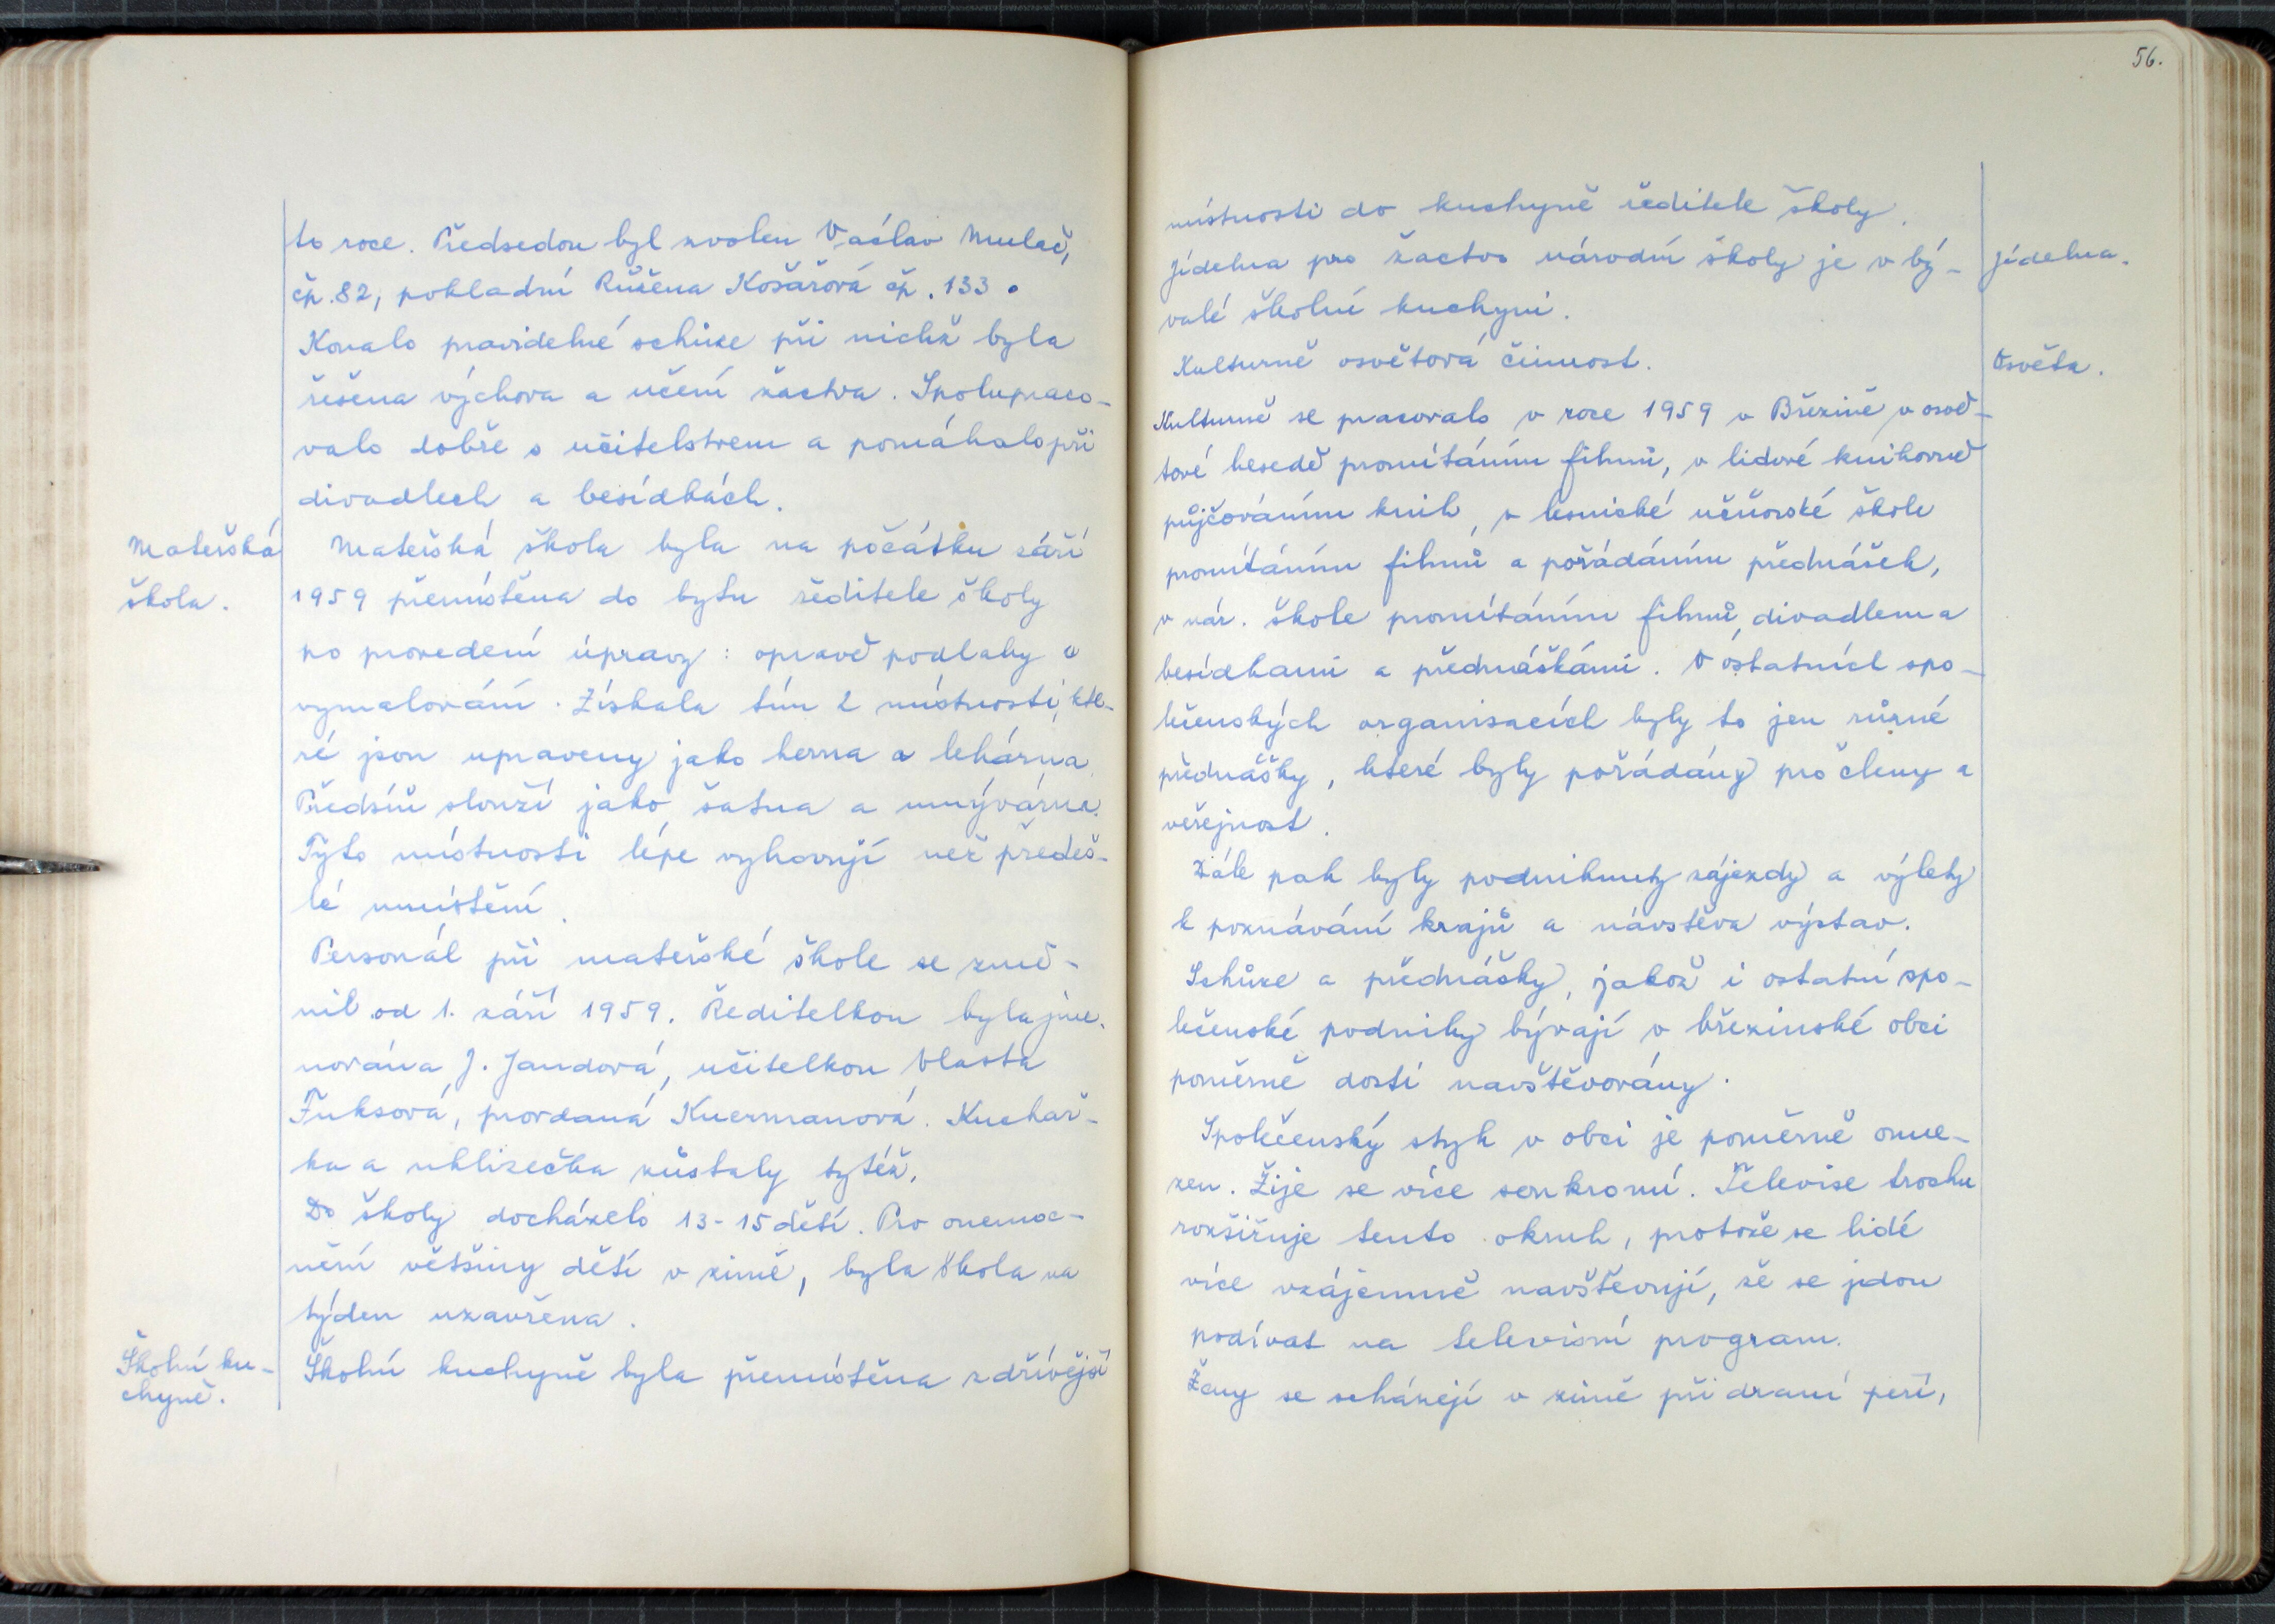 to roce. Předsedou byl zvolen Václav Mulač,
čp. 82, pokladní Růžena Košařová čp. 133.
Konalo pravidelné schůze při nichž byla
řešena výchova a učení žactva. Spolupraco-
valo dobře s učitelstvem a pomáhalo při
divadlech a besídkách.
Mateřská
škola.
Mateřská škola byla na počátku září
1959 přemístěna do bytu ředitele školy
po provedení úpravy: opravě podlahy a
vymalování. Získala tím 2 místnosti, kte-
ré jsou upraveny jako herna a lehárna.
Předsíň slouží jako šatna a umývárna.
Tyto místnosti lépe vyhovují než předeš-
lé umístění.
Personál při mateřské škole se změ-
nil od 1. září 1959. Ředitelkou byla jme-
nována J. Jandová, učitelkou Vlasta
Fuksová, provdaná Kuermanová. Kuchař-
ka a uklizečka zůstaly tytéž.
Do školy docházelo 13-15 dětí. Pro onemoc-
nění většiny dětí v zimě, byla škola na
týden uzavřena.
Školní ku-
chyně.
Školní kuchyně byla přemístěna z dřívější
56.
místnosti do kuchyně ředitele školy.
Jídelna pro žactvo národní školy je v bý-
valé školní kuchyni.
Jídelna.
Kulturně osvětová činnost.
Osvěta.
Kulturně se pracovalo v roce 1959 v Březině v osvě-
tové besedě promítáním filmů, v lidové knihovně
půjčováním knih, v lesnické učňovské škole
promítáním filmů a pořádáním přednášek,
v nár. škole promítáním filmů, divadlem a
besídkami a přednáškámi. V ostatních spo-
lečenských organisacích byly to jen různé
přednášky, které byly pořádány pro členy a
veřejnost.
Dále pak byly podniknuty zájezdy a výlety
k poznávání krajů a návstěva výstav.
Schůze a přednášky, jakož i ostatní spo-
lečenské podniky bývají v březinské obci
poměrně dosti navštěvovány.
Společenský styk v obci je poměrně ome-
zen. Žije se více soukromí. Televise trochu
rozšiřuje tento okruh, protože se lidé
více vzájemně navštěvují, že se jdou
podívat na televisní program.
Ženy se scházejí v zimě při draní peří,